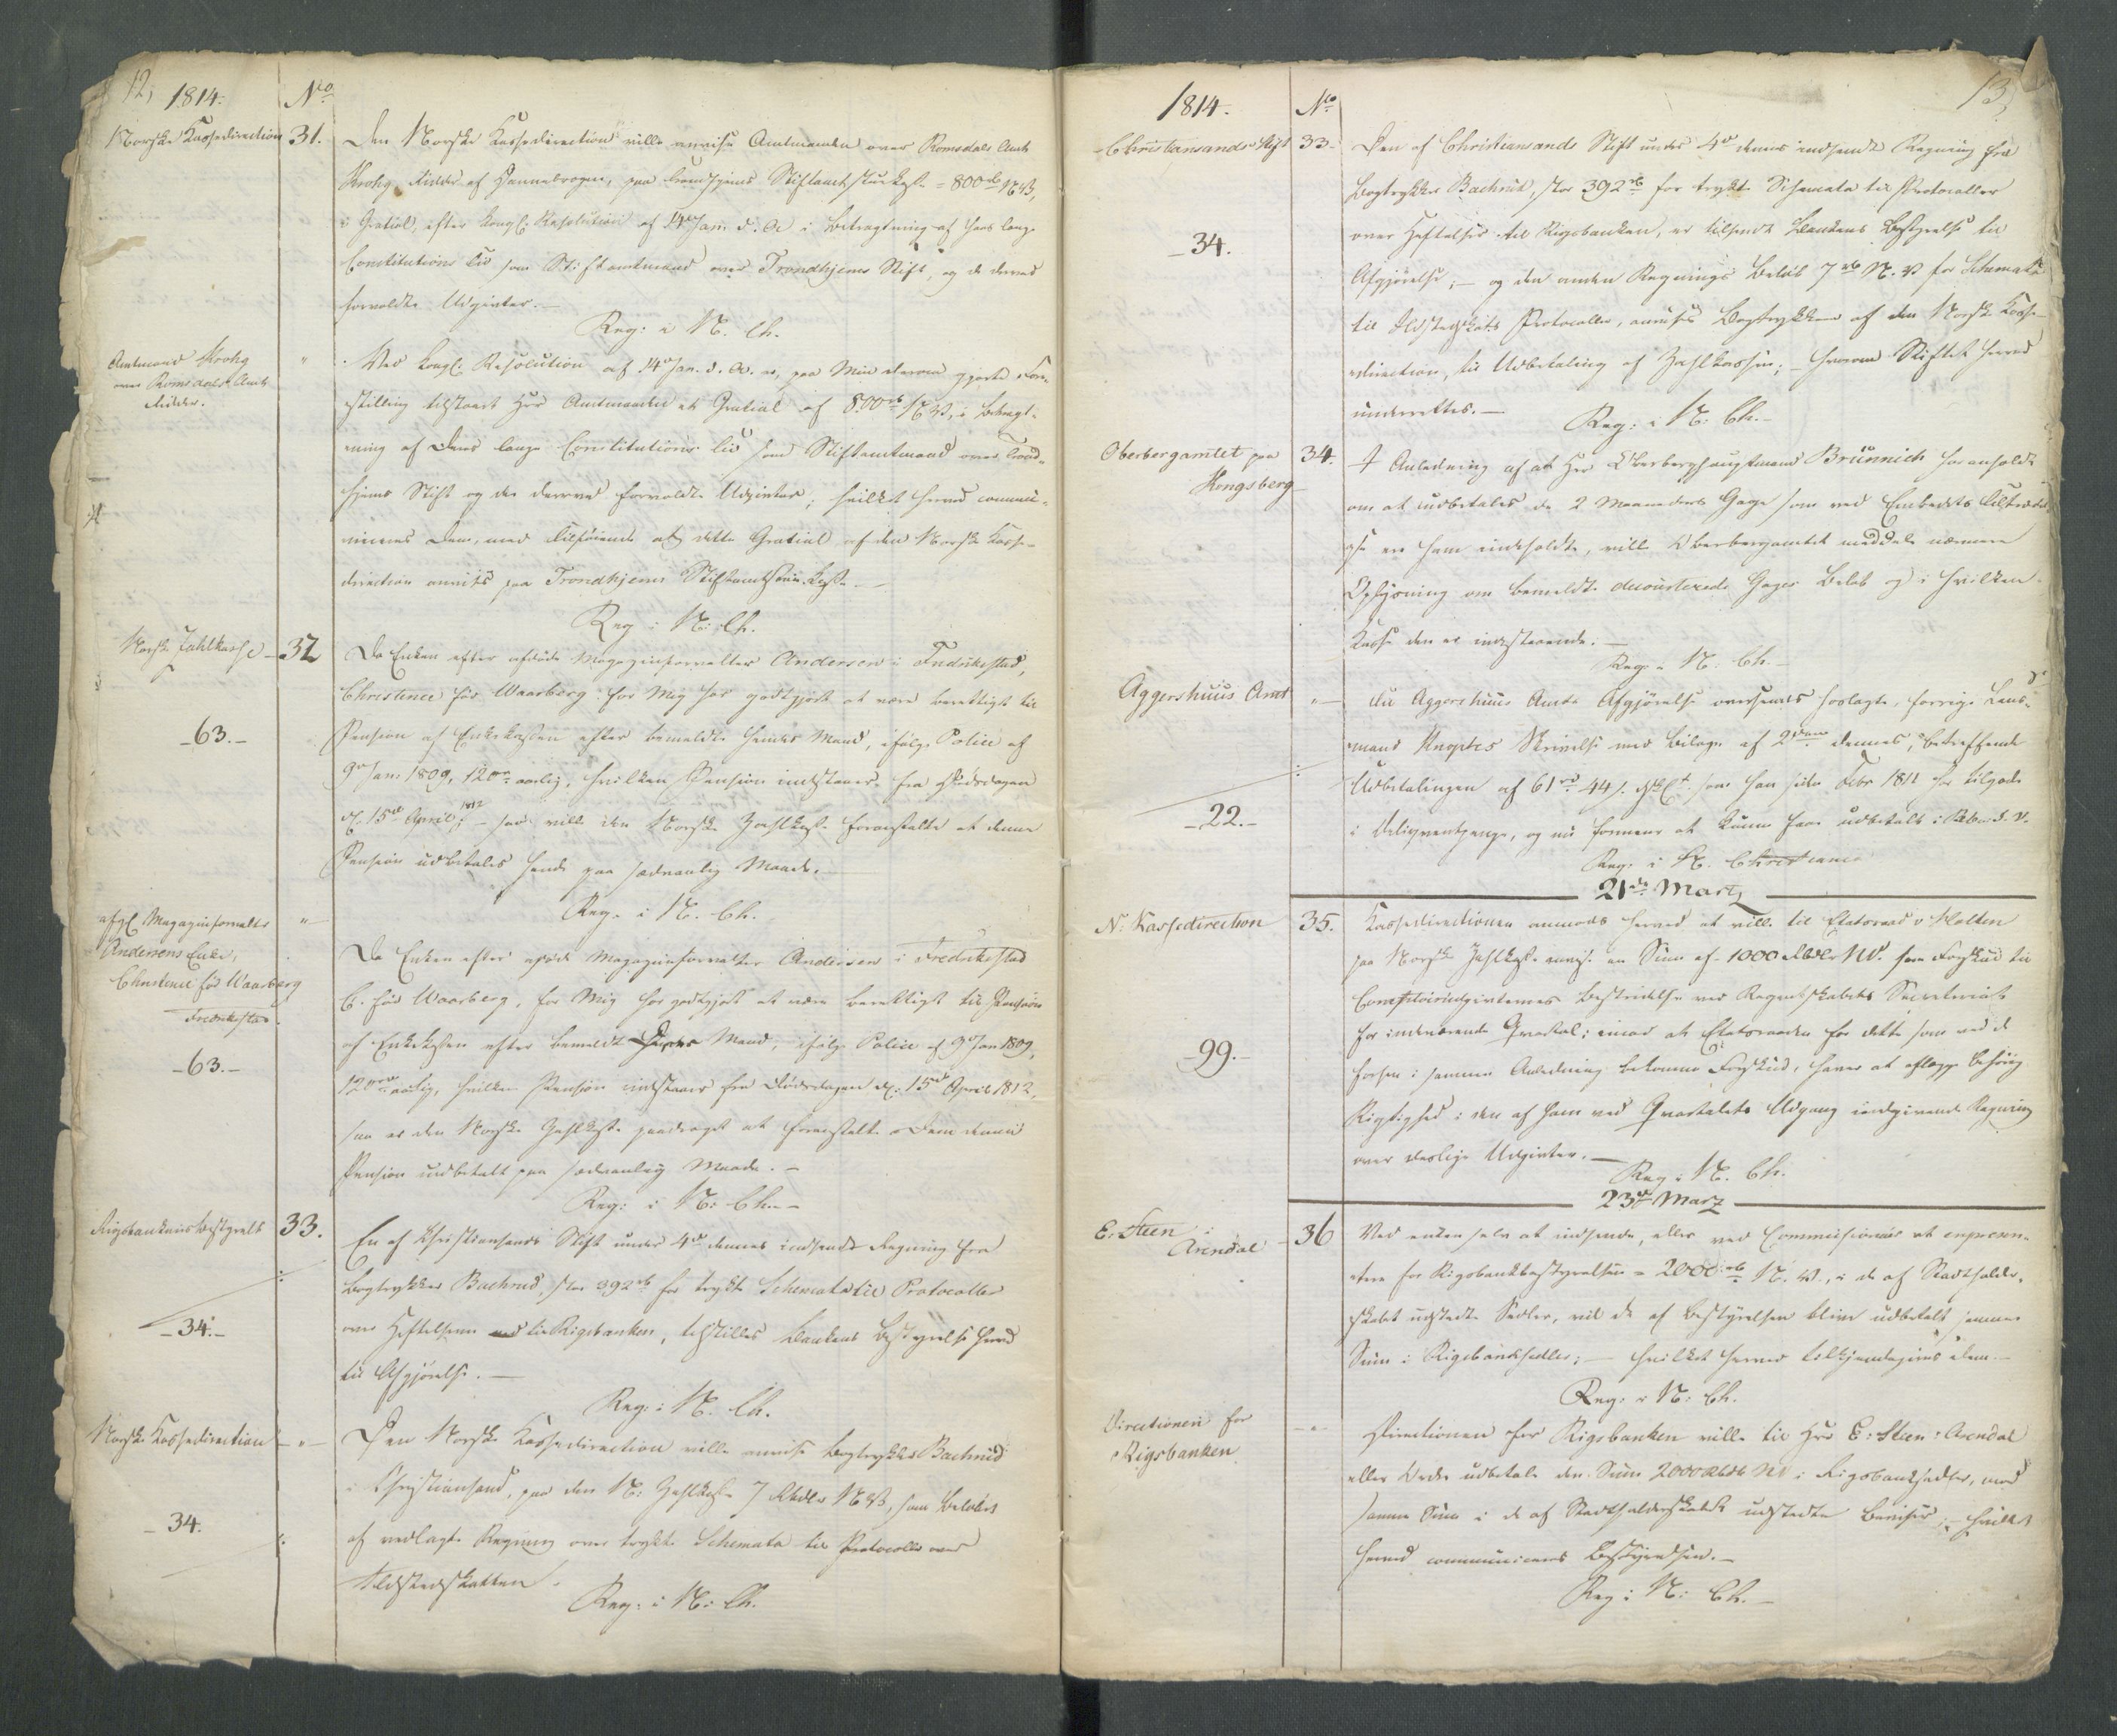 12,
1814.
No
Norske Kassedirection
31.
Den Norske Kassedirection ville anvise Amtmanden over Romsdals Amt
Krohg, Ridder af Dannebrogen, paa Trondhjems Stiftamtstuekasse = 800 rb NV,
i Gratial, efter kongl: Resolution af 14de Jan. d. A. i Betragtning af hans lange
Constitutions Tid som Stiftamtmand over Trondhjems Stift, og de derved
forvoldte Udgivter. —
Reg: i N. Ch.
Amtmand Krohg
over Romsdals Amt
Ridder.
"
Ved kongl: Resolution af 14de Jan. d. A. er, paa Min derom gjorte Fore-
stilling tilstaaet Hr Amtmanden et Gratial af 800 rb NV, i Betragt-
ning af Deres lange Constitutions Tid som Stiftamtmand over Trond-
hjems Stift og de derved forvoldte Udgivter; hvilket herved commu-
niceres Dem, med Tilføiende at dette Gratial af den Norske Kasse-
direction anvises paa Trondhjems Stiftamtstue Kasse. —
Reg: i N: Ch.
Norske Zahlkasse
32
Da Enken efter afdøde Magazinforvalter Andersen i Fredrikstad,
Christence fød Waarberg for Mig har godtgjort at være berettiget til
Pension af Enkekassen efter bemeldte hendes Mand, ifølge Police af
9de Jan: 1809, 120 rd aarlig, hvilken Pension indestaaer fra Dødsdagen
d. 15de April 1812; — saa ville den Norske Zahlkasse foranstalte at denne
Pension udbetales hende paa sædvanlig Maade. —
Reg: i N. Ch.
63.
afg. Magazinforvalter
Andersens Enke,
Christence fød Waarberg
Fredrikstad.
"
Da Enken efter afdøde Magazinforvalter Andersen i Fredrikstad
C. fød Waarberg, for Mig har godtgjort at være berettiget til Pension
af Enkekassen efter bemeldte Deres Mand, ifølge Police af 9de Jan 1809,
120 rd aarlig, hvilken Pension indestaaer fra Dødsdagen d. 15de April 1812,
saa er den Norske Zahlkasse paadraget at foranstalte Dem denne
Pension udbetalt paa sædvanlig Maade. —
Reg: i N: Ch. —
63.
Rigsbankens Bestyrelse
33.
En af Christiansands Stift under 4de dennes indsendt Regning fra
Bogtrykker Bachrud, stor 392 rb for trykte Schemata til Protocoller
over Heftelserne til Rigsbanken, tilstilles Bankens Bestyrelse herved
til Afgjørelse. —
Reg: i N. Ch.
34.
Norske Kassedirection
"
Den Norske Kassedirection ville anvise Bogtrykker Bachrud
i Christiansand, paa den N: Zahlkasse 7 Rbdlr NV, som Beløbet
af vedlagte Regning over trykte Schemata til Protocoller over
Ildstedsskatten.
Reg: i N: Ch.
34.
13,
1814.
No
Christiansands Stift
33.
Den af Christiansands Stift under 4de dennes indsendte Regning fra
Bogtrykker Bachrud, stor 392 rb for trykte Schemata til Protocoller
over Heftelser til Rigsbanken, er tilsendt Bankens Bestyrelse til
Afgjørelse; — og den anden Regnings Beløb 7 rb N. V for Schemata
til Ildstedskats Protocoller, anvises Bogtrykkeren af den Norske Kasse-
direction, til Udbetaling af Zahlkassen; — hvorom Stiftet herved
underrettes. —
Reg: i N: Ch. —
34.
Oberbergamtet paa
Kongsberg
34.
I Anledning af at Hr Oberberghauptmand Brünnich har anholdt
om at udbetales de 2 Maaneders Gage som ved Embedets Tiltrædel-
se er ham indeholdte, ville Oberbergamtet meddele nærmere
Oplysning om bemeldte decourterede Gages Beløb og i hvilken
Kasse den er indestaaende. —
Reg: i N: Ch. —
Aggershuus Amt
"
Til Aggershuus Amts Afgjørelse oversendes hoslagte, forrige Lens-
mand Knophs Skrivelse med Bilage af 2den dennes, betreffende
Udbetalingen af 61 rd 44 s. som han siden Febr 1811 har tilgode
i Deliqventpenge, og nu formener at kunne faae udbetalt i
Reg: i N. Christiania
22.
21de Martz
N: Kassedirection
35.
Kassedirectionen anmodes herved at ville til Etatsraad v Holten
paa Norske Zahlkasse anvise en Sum af 1000 Rbdlr NV. som Forskud til
Comptoirudgivternes Bestridelse ved Regentskabets Secretariat
for indeværende Qvartal; imod at Etatsraaden for dette som ved de
forhen i samme Anledning bekomne Forskud, haver at aflægge behørig
Rigtighed i den af ham ved Qvartalets Udgang indgivende Regning
over deslige Udgivter. —
Reg: i N. Ch.
99.
23de Martz
E. Steen i
Arendal
36
Ved enten selv at indsende, eller ved Commissionær at repræsen-
tere for Rigsbankbestyrelsen = 2000 rb N. V., i de af Stadtholder-
skabet udstedte Sedler, vil de af Bestyrelsen blive udbetalt samme
Sum i Rigsbanksedler; — hvilket herved tilkjendegives Dem —
Reg: i N: Ch.
Directionen for
Rigsbanken
"
Directionen for Rigsbanken ville til Hr E: Steen i Arendal
eller Ordre udbetale den Sum 2000 Rbdlr NV i Rigsbanksedler, mod
samme Sum i de af Stadtholderskabet udstedte Beviser; — hvilket
herved communiceres Bestyrelsen. —
Reg: i N: Ch. —